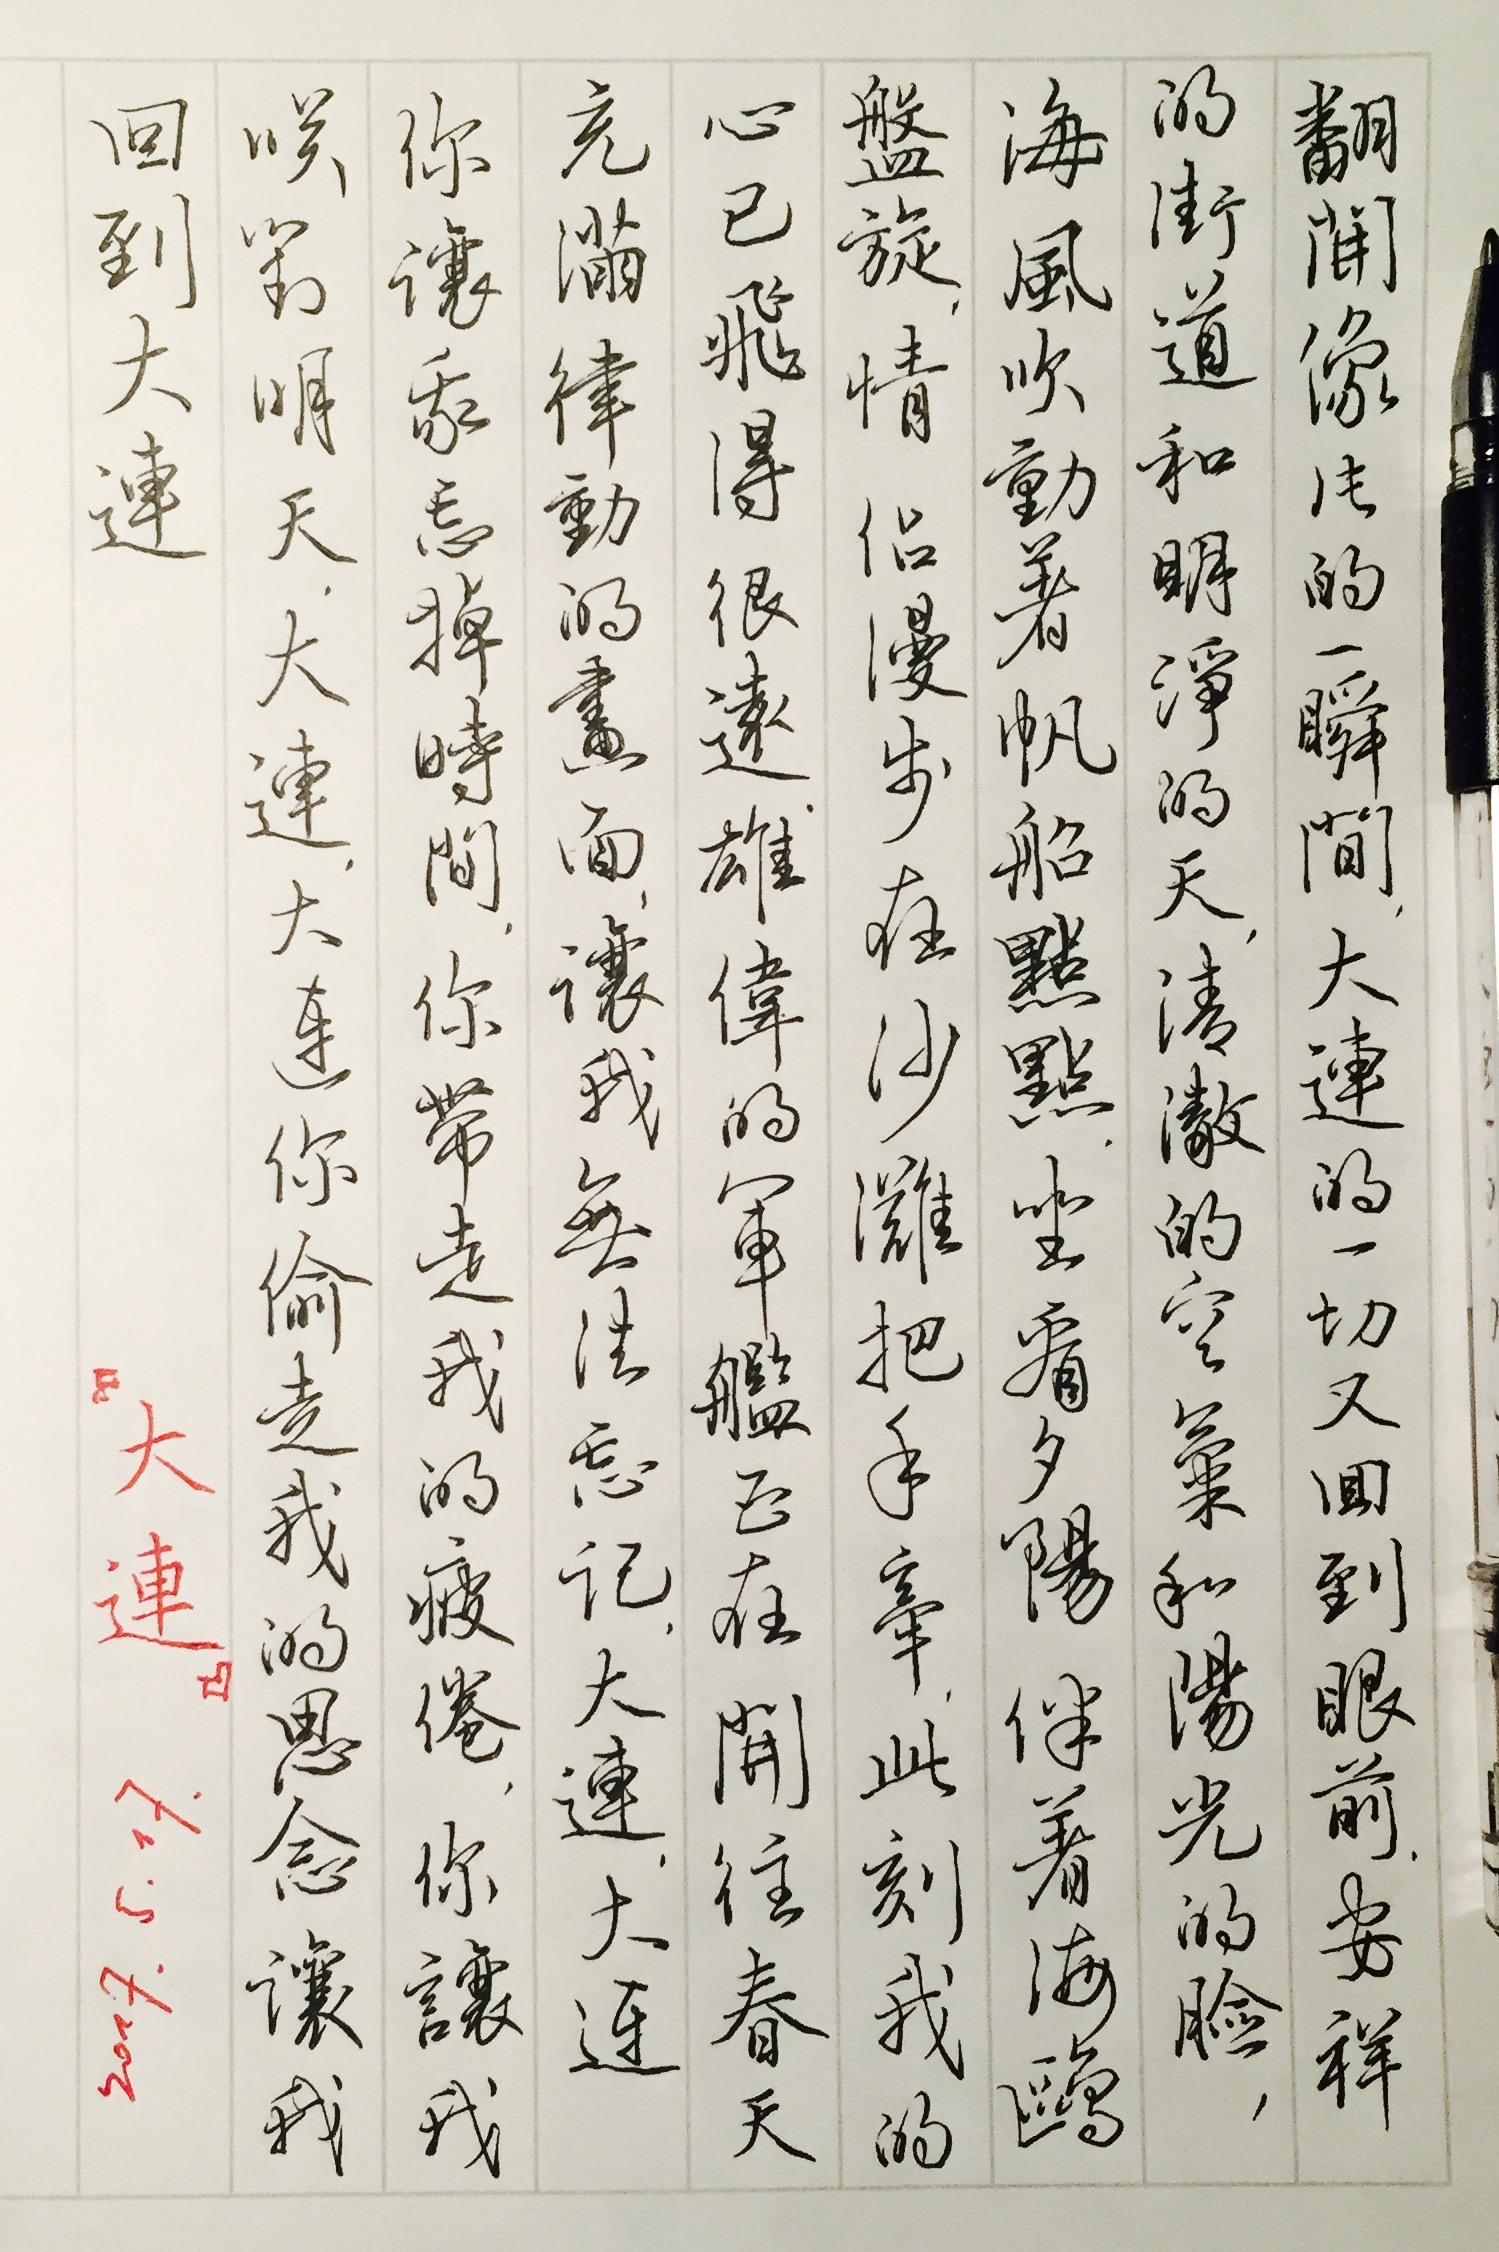 翻開像片的一瞬間，大連的一切又回到眼前，安祥
的街道和明淨的天，清澈的空氣和陽光的臉，
海風吹動著帆船點點，坐看夕陽伴著海鷗
盤旋，情侶漫步在沙灘把手牽，此刻我的
心已飛得很遠，雄偉的軍艦正在開往春天
充滿律動的畫面，讓我無法忘記，大連，大连
你讓我忘掉時間，你带走我的疲倦，你讓我
咲對明天，大連，大连你偷走我的思念讓我
回到大連
『大連』
2017.5.17.